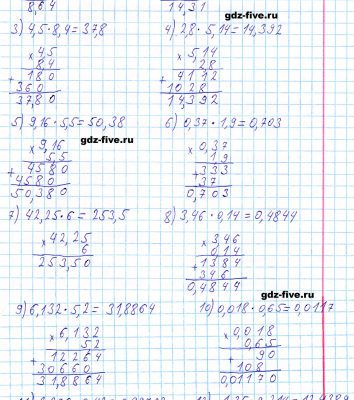 8,6,4
14,31
gdz-five.ru
3) 4,5·8,4=378
4) 28·5,14=14,392
× 4,5
8,4
+ 180
360
37,80
× 5,14
2,8
+ 4112
1028
14,392
5) 9,16·5,5=50,38
6) 0,37·1,9=0,703
gdz-five.ru
× 9,16
5,5
+ 4580
4580
50,380
× 0,37
1,9
+ 333
37
0,703
7) 42,25·6=253,5
8) 3,46·0,14=0,4844
× 42,25
6
253,50
× 3,46
0,14
+ 1384
346
0,4844
gdz-five.ru
9) 6,132·5,2=31,8864
10) 0,018·0,65=0,0117
× 6,132
5,2
+ 12264
30660
31,8864
× 0,018
0,65
+ 90
108
0,01170